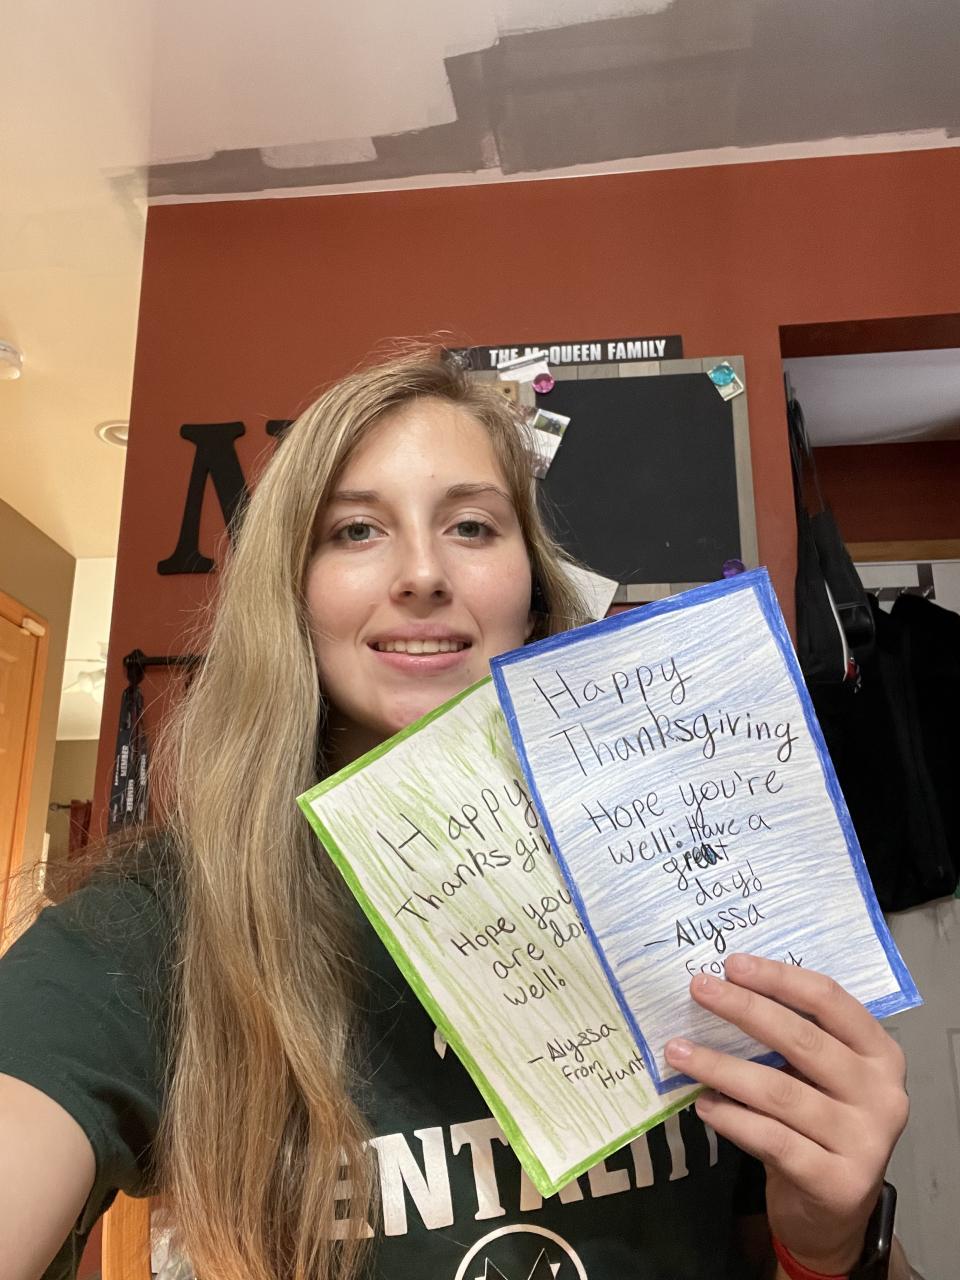 THE McQUEEN FAMILY
MEMBER
MEMBER
Happy
Thanksgiving
Hope you're
well! Have a
great
day!
-Alyssa
from
Happy
Thanksgiv
Hope you
are do
well!
-Alyssa
from Hunt
ENTALITY